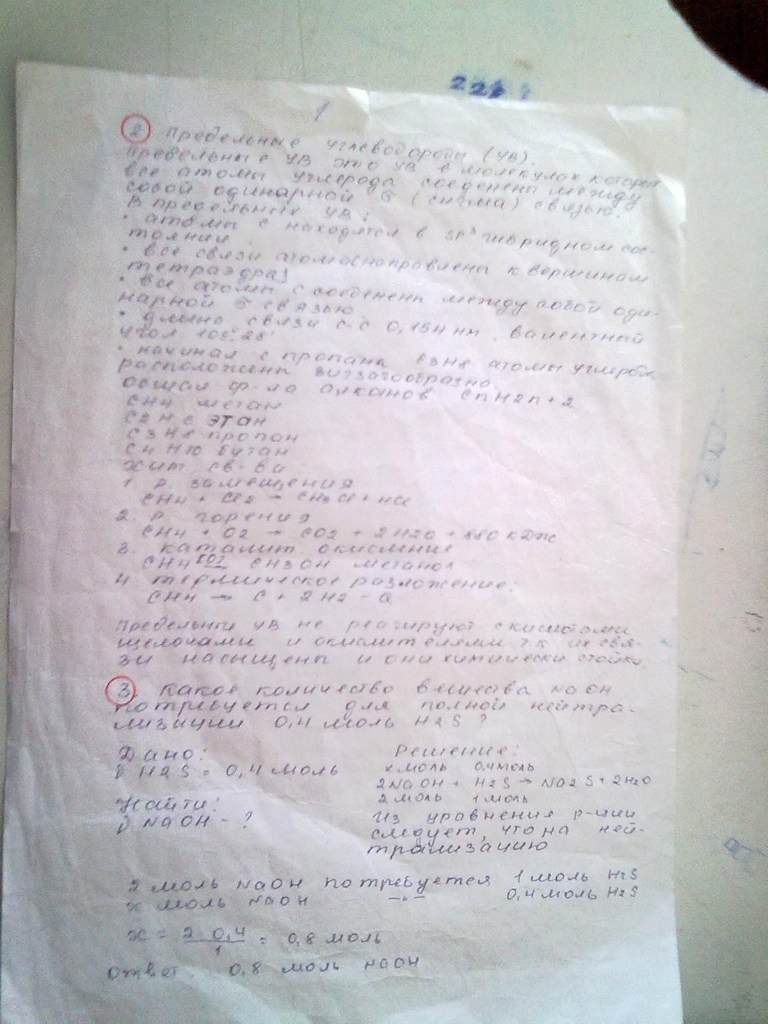 222
1
2 Предельные углевороды (УВ)
Предельные УВ это УВ в молекулах которых
все атомы углерода соеденены между
собой одинарной б (сигма) связью.
В предельные УВ:
• атомы С находятся в SP³ гибридном сос-
тоянии
• все связи атомов направлены к вершинам
тетраэдра
• все атомы С соеденены между собой оди-
нарной б связью
• длина связи С-С 0,154 нм, валентный
угол 109°28'
• начиная с пропана С3Н8 атомы углерода
расположены зигзагообразно
общая ф-ла алканов СnH2n+2
СН4 метан
С2Н6 этан
С3Н8 пропан
С4Н10 бутан
хим св-ва
1 р. замещения
СН4 + Cl2 → CH3Cl + HCl
2. р. горения
CH4 + O2 → CO2 + 2H2O + 880 кДж
3. каталит окисление
CH4 CH3OH метанол
4 термическое разложение:
CH4 → C + 2H2 - Q
Предельные УВ не реагируют с кислотами
щелочами и окислителями т.к их свя-
зи насыщены и они химически стойки
3 Какое количество вещества NaOH
потребуется для полной нейтра-
лизации 0,4 моль H2S ?
Дано: Решение:
ν H2S = 0,4 моль х моль 0,4 моль
2NaOH + H2S → Na2S + 2H2O
Найти: 2 моль 1 моль
ν NaOH - ? Из уравнения р-ции
следует, что на ней-
трализацию
2 моль NaOH потребуется 1 моль H2S
х моль NaOH -"- 0,4 моль H2S
х = 2 0,4 / 1 = 0,8 моль
Ответ. 0,8 моль NaOH